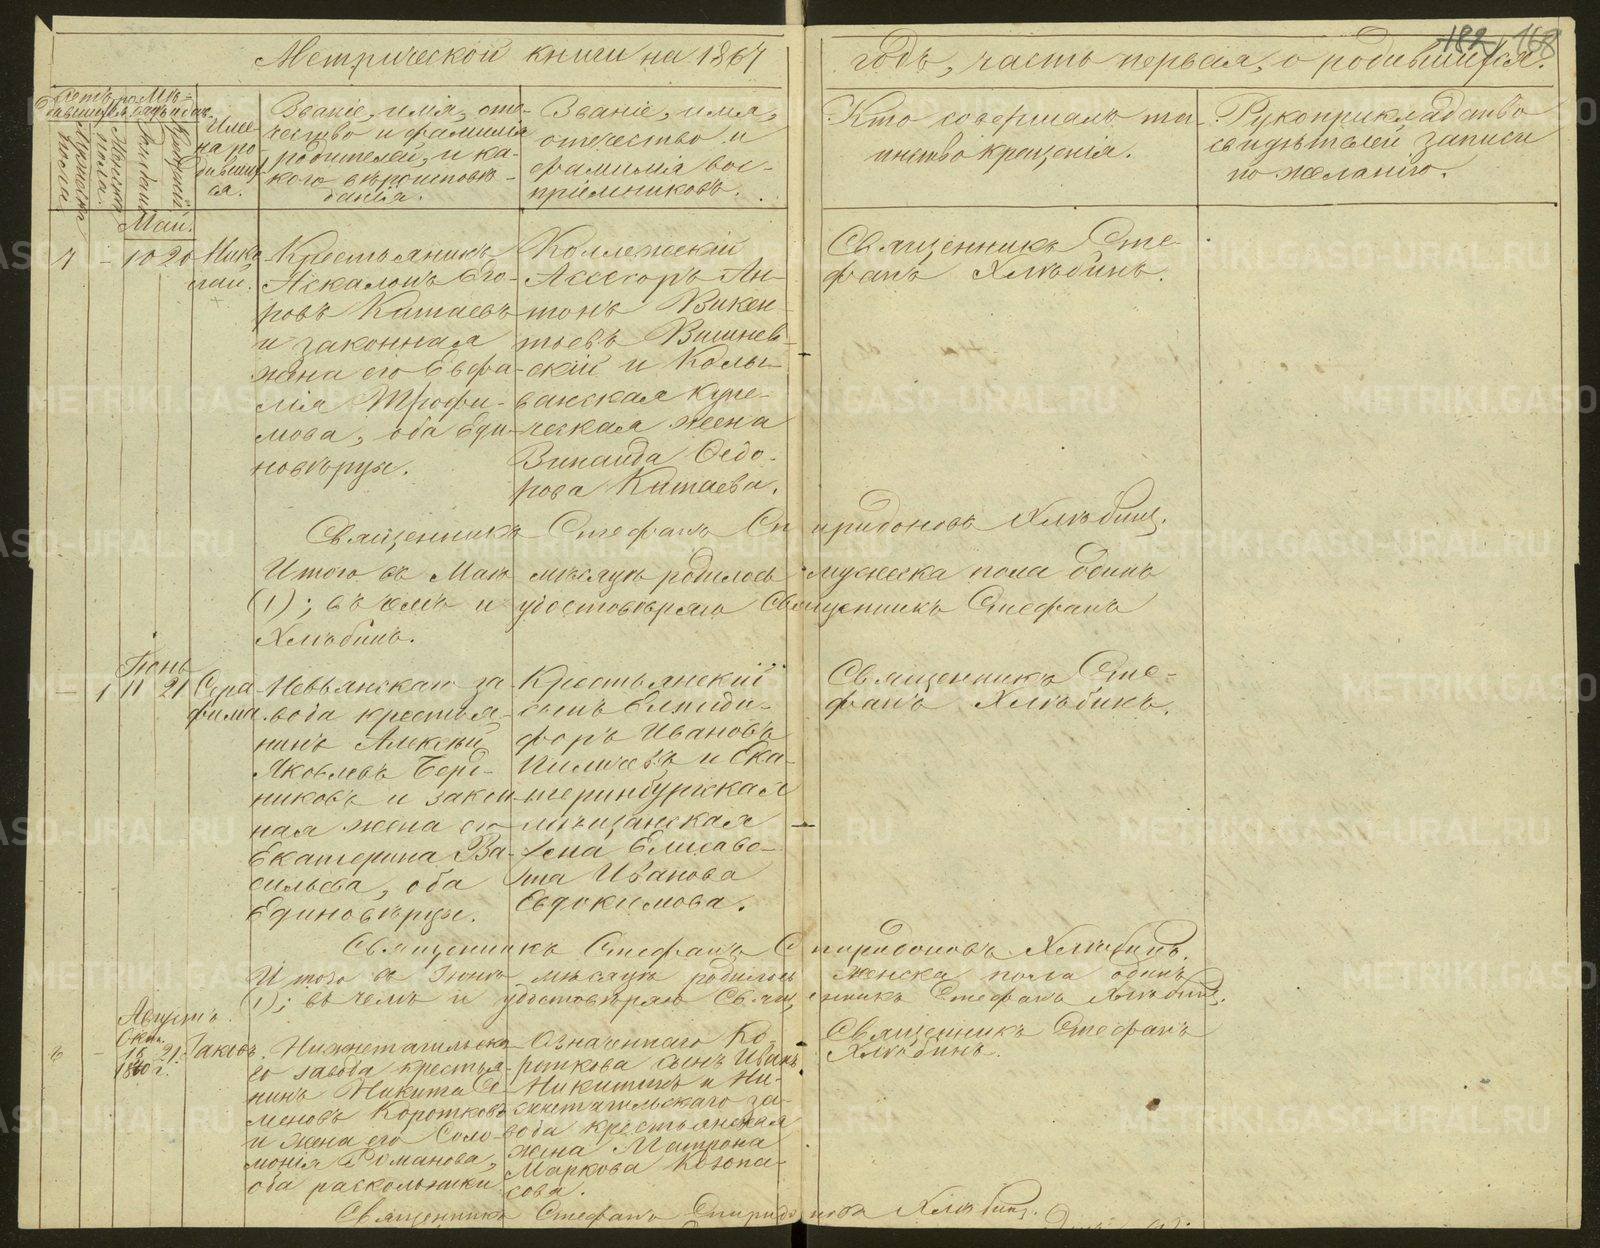 Метрической книги на 1867
годъ, часть первая, о родившихся.
182 168
Счетъ ро-
дившихся.
Мужеска
пола.
Женска
пола.
Мѣ-
сяцъ и день.
Рожденія
Крещенія
Име-
на ро-
дивших-
ся.
Званіе, имя, оте-
чество и фамилія
родителей, и ка-
кого вѣроисповѣ-
данія.
Званіе, имя,
отчество и
фамилія вос-
пріемниковъ.
Кто совершалъ та-
инство крещенія.
Рукоприкладство
свидѣтелей записи
по желанію.
Май.
7 - 10 20
Нико-
лай.
Крестьянинъ
Аскалонъ Его-
ровъ Китаевъ
и законная
жена его Евфи-
мія Трофи-
мова, оба еди-
новѣрцы.
Коллежскій
Асесоръ Ан-
тонъ Викен-
тьевъ Вишнев-
скій и Колы-
ванская купе-
ческая жена
Зинаида Ѳедо-
рова Китаева.
Священникъ Сте-
фанъ Хлѣбинъ.
Священникъ Стефанъ Спиридоновъ Хлѣбинъ.
Итого въ Маѣ мѣсяцѣ родилось мужеска пола одинъ
(1); въ чемъ и удостовѣряю Священникъ Стефанъ
Хлѣбинъ.
Іюнь
- 1 11 21
Сера-
фима.
Невьянскаго за-
вода крестья-
нинъ Алексѣй
Яковлевъ Берд-
никовъ и закон-
ная жена его
Екатерина Ва-
сильева, оба
Единовѣрцы.
Крестьянскій
сынъ Елпиди-
форъ Ивановъ
и Ека-
теринбургская
мѣщанская
жена Елисаве-
та Иванова
Евдокимова.
Священникъ Сте-
фанъ Хлѣбинъ.
Священникъ Стефанъ Спиридоновъ Хлѣбинъ.
Итого въ Іюнѣ мѣсяцѣ родилось женска пола одинъ
(1); въ чемъ и удостовѣряю Священникъ Стефанъ Хлѣбинъ.
Августъ.
Окт.
18 21.
г.
Іаковъ.
Нижнетагильска-
го завода крестья-
нинъ Никита Се-
меновъ Коротковъ
и жена его Соло-
монія Романова,
оба раскольники
Означеннаго Ко-
роткова сынъ Иванъ
Никитинъ и Ни-
жнетагильскаго за-
вода крестьянская
жена Матрона
Маркова Козопа-
сова.
Священникъ Стефанъ
Хлѣбинъ.
Священникъ Стефанъ Спиридоновъ Хлѣбинъ.
METRIKI.GASO-URAL.RU